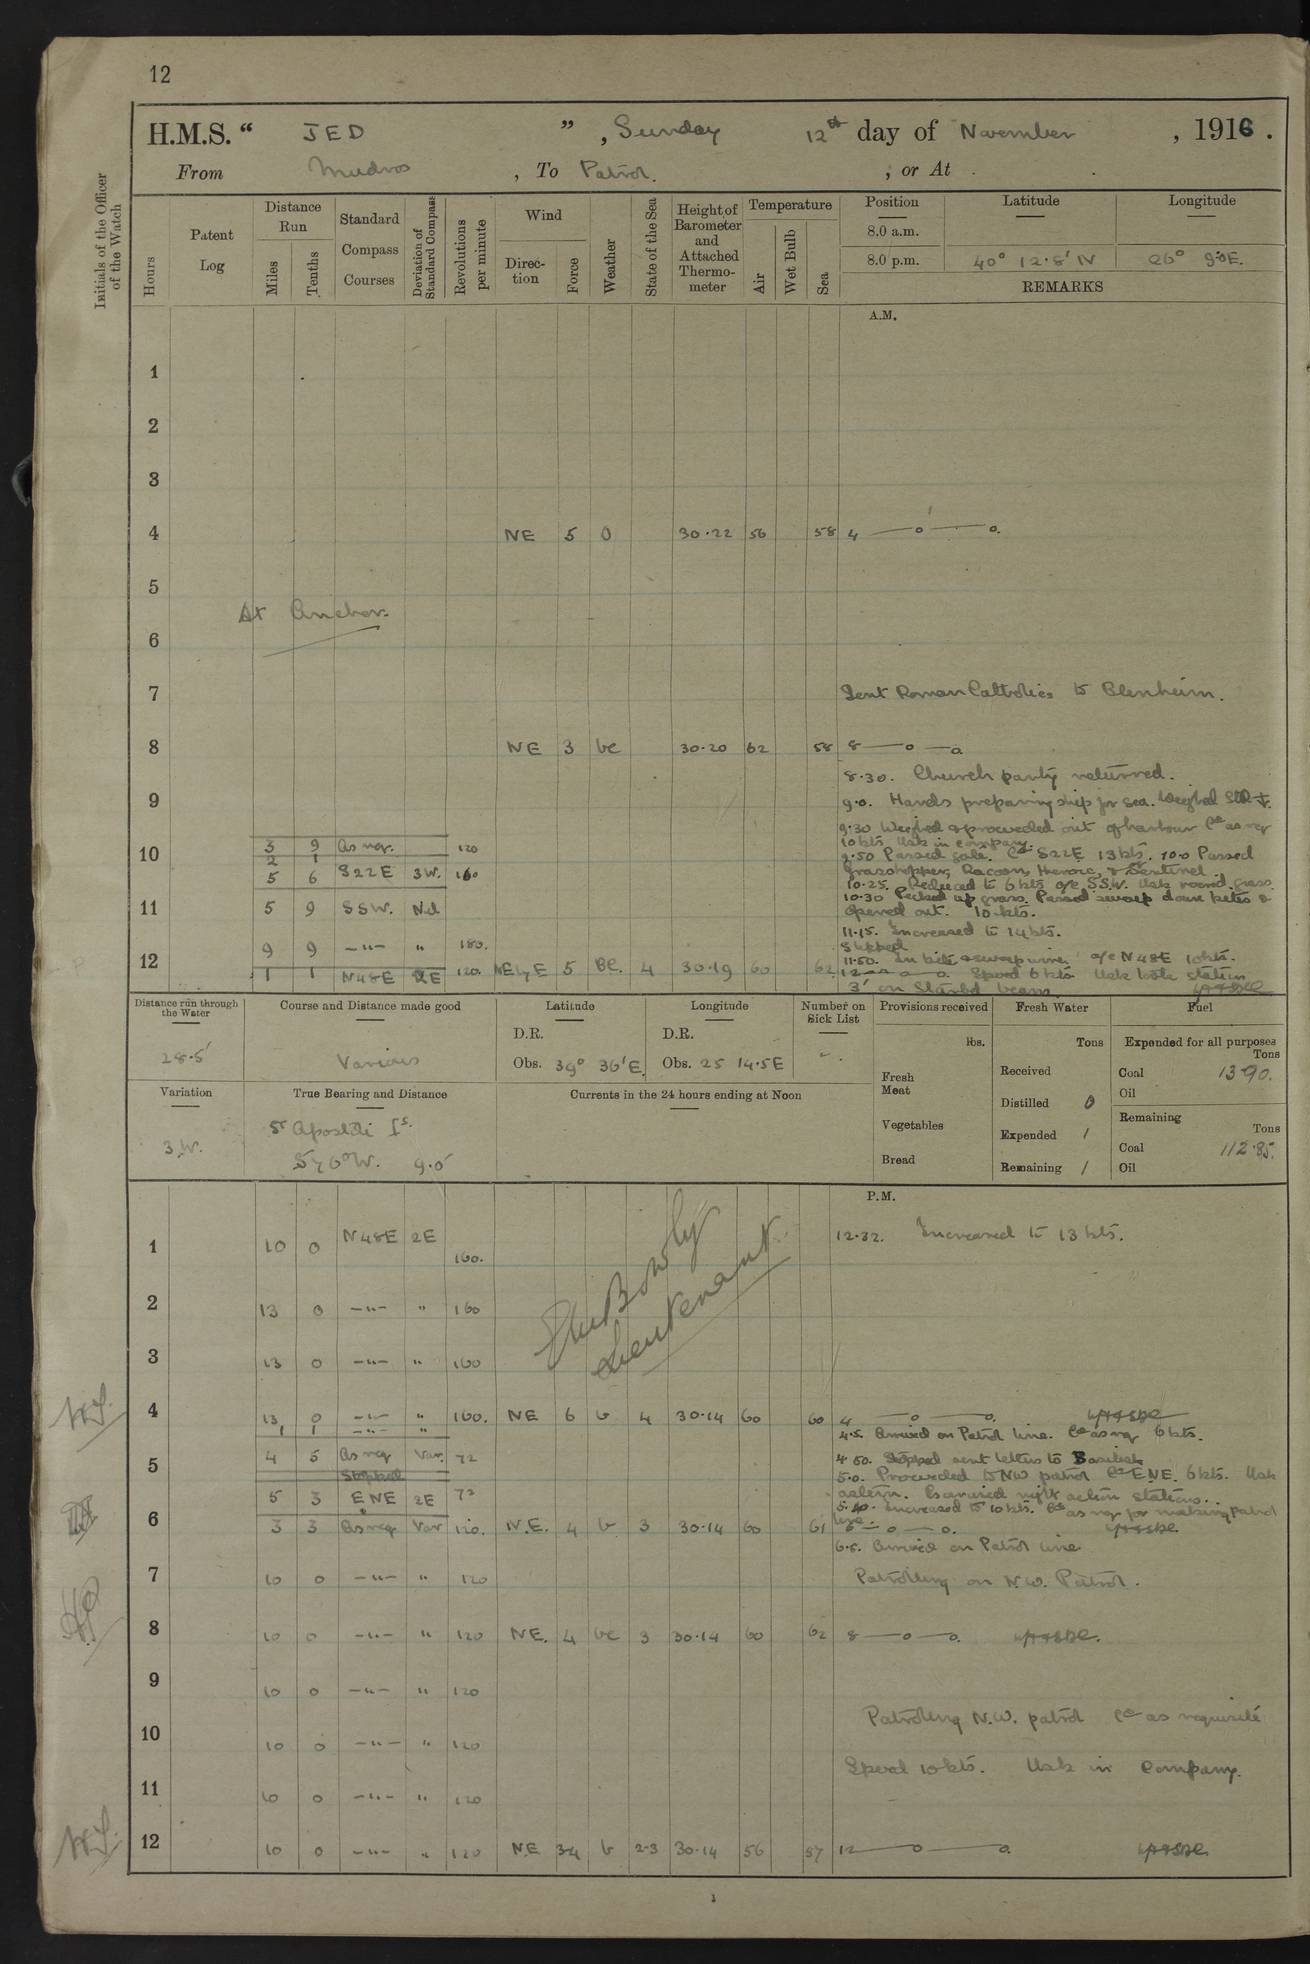 12
H.M.S. “ JED ” , Sunday 12th day of November , 1916 .
From Mudros , To Patrol. , or At
Initials of the Officer of the Watch
Hours Patent Log Distance Run Miles Tenths Standard Compass Courses Deviation of Standard Compass Revolutions per minute Wind Direction Force Weather State of the Sea Height of Barometer and Attached Thermometer Temperature Air Wet Bulb Sea Position Latitude Longitude
8.0 a.m.
8.0 p.m. 40° 12.8' N 26° 9.0 E.
REMARKS
A.M.
1
2
3
4 NE 5 O 30.22 56 58 4 —o—o.
5
At Anchor.
6
7 Sent Roman Catholics to Blenheim.
8 NE 3 bc 30.20 62 58 8—o—o.
8.30. Church party returned.
9 9.0. Hands preparing ship for sea. Weighed Stb
9.30 Weighed & proceeded out of harbour Co as req
3 9 As req. 120 10 kts. Usk in company.
10 2 1 9.50 Passed gate. Co S22E 13 kts. 10.0 Passed
5 6 S22E 3W. 160 Grasshopper, Racoon, Heroic, & Sentinel.
10.25. Reduced to 6 kts a/c S.S.W. Usk
10.30 Passed sweep down kites &
11 5 9 SSW. Nil opened out. 10 kts.
11.15. Increased to 14 kts.
9 9 —"— " 180. Stopped
11.50. In kite & sweep wire a/c N48E 10 kts.
12 1 1 N48E 2E 120. NE by E 5 BC. 4 30.19 60 62 12—o—o. Speed 6 kts. Usk took station
3' on Starbd beam
Distance run through the Water Course and Distance made good Latitude Longitude Number on Sick List Provisions received Fresh Water Fuel
D.R. D.R. lbs. Tons Expended for all purposes Tons
28.5' Various Obs. 39° 36' E. Obs. 25 14.5E Fresh Meat Received Coal 13.90.
Oil
Variation True Bearing and Distance Currents in the 24 hours ending at Noon Distilled 0 Remaining Tons
St Apostoli Is. Vegetables Expended 1
3.W. S76°W. 9.0' Coal 112.85.
Bread Remaining 1 Oil
P.M.
1 10 0 N48E 2E 160. 12.32. Increased to 13 kts.
2 13 0 —"— " 160
Lieutenant
3 13 0 —"— " 160
4 13 0 —"— " 160. NE 6 b 4 30.14 60 60 4 —o—o.
1 1 —"— " 4.5. Arrived on Patrol line. Co as req 6 kts.
5 4 5 As req Var. 72 4.50. Stopped sent letters to Basilisk
Stopped 5.0. Proceeded to NW patrol Co ENE. 6 kts. Usk
5 3 ENE 2E 72 astern. Exercised night action stations.
5.40. Increased to 10 kts. Co as req for making Patrol
line.
6 3 3 As req Var 120. N.E. 4 b 3 30.14 60 61 6—o—o.
6.5. Arrived on Patrol line
7 10 0 —"— " 120 Patrolling on N.W. Patrol.
8 10 0 —"— " 120 NE. 4 bc 3 30.14 60 62 8—o—o.
9 10 0 —"— " 120
Patrolling N.W. patrol Co as requisite
10 10 0 —"— " 120
Speed 10 kts. Usk in Company.
11 10 0 —"— " 120
12 10 0 —"— " 120 NE 3-4 b 2-3 30.14 56 57 12—o—o.